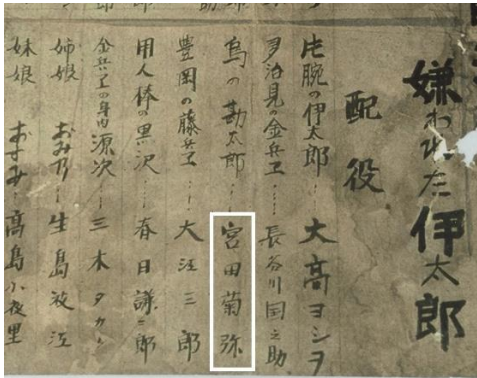 嫌われた伊太郎
配役
片腕の伊太郎……大高ヨシヲ
多治見の金兵エ……長谷川国之助
烏の勘太郎……宮田菊弥
豊岡の藤兵エ……大江三郎
用人棒の黒沢……春日謙二郎
金兵エの身内源次……三木タカシ
姉娘 おみ乃……生島波江
妹娘 おすみ……高島小夜里